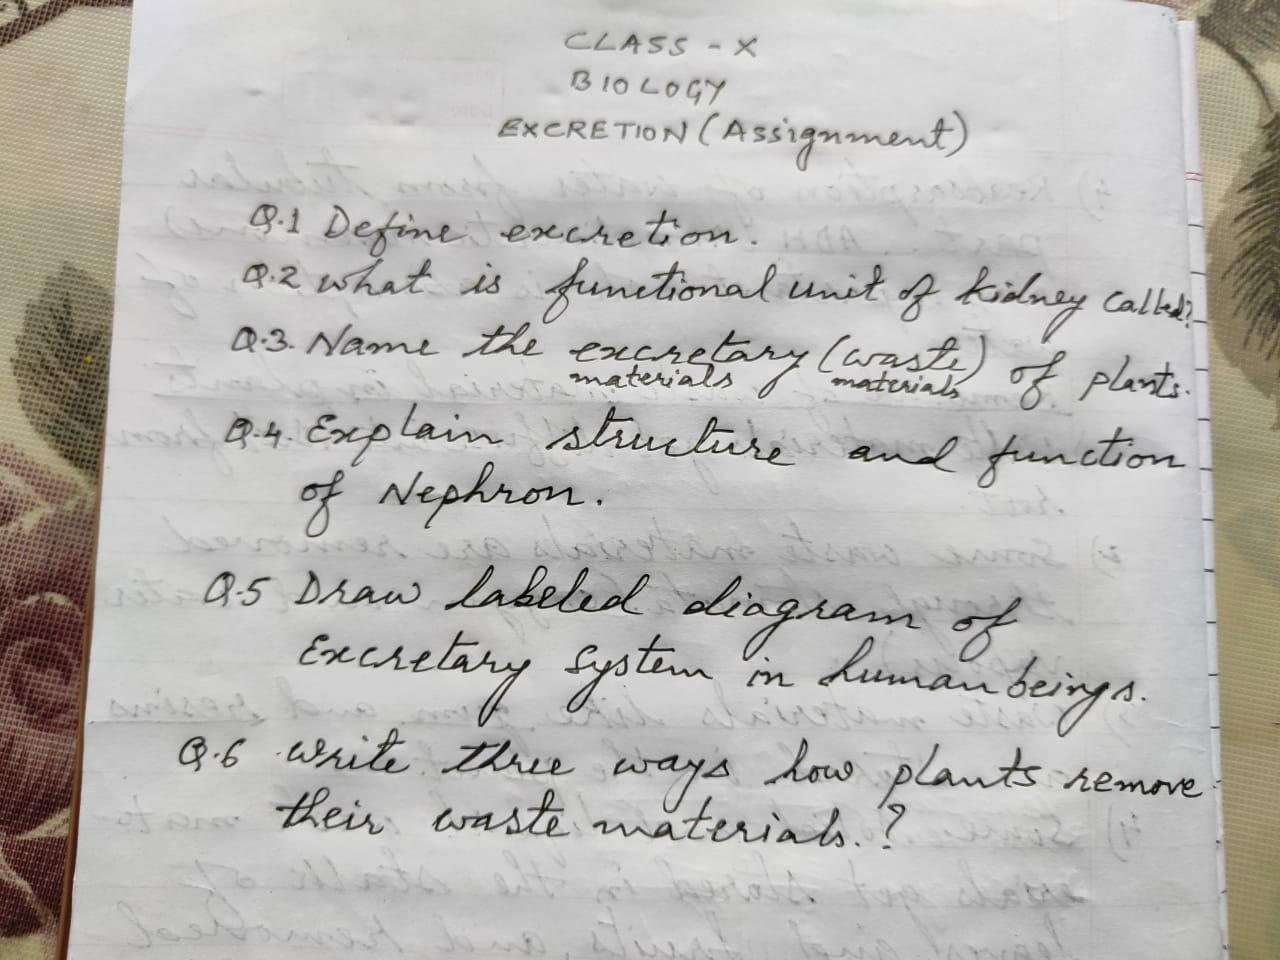 CLASS - X
BIOLOGY
EXCRETION (Assignment)
Q.1 Define excretion.
Q.2 what is functional unit of kidney called?
Q.3. Name the excretary (waste) of plants.
materials materials
Q.4. Explain structure and function
of Nephron.
Q.5 Draw labeled diagram of
Excretary System in human beings.
Q.6 write three ways how plants remove
their waste materials.?